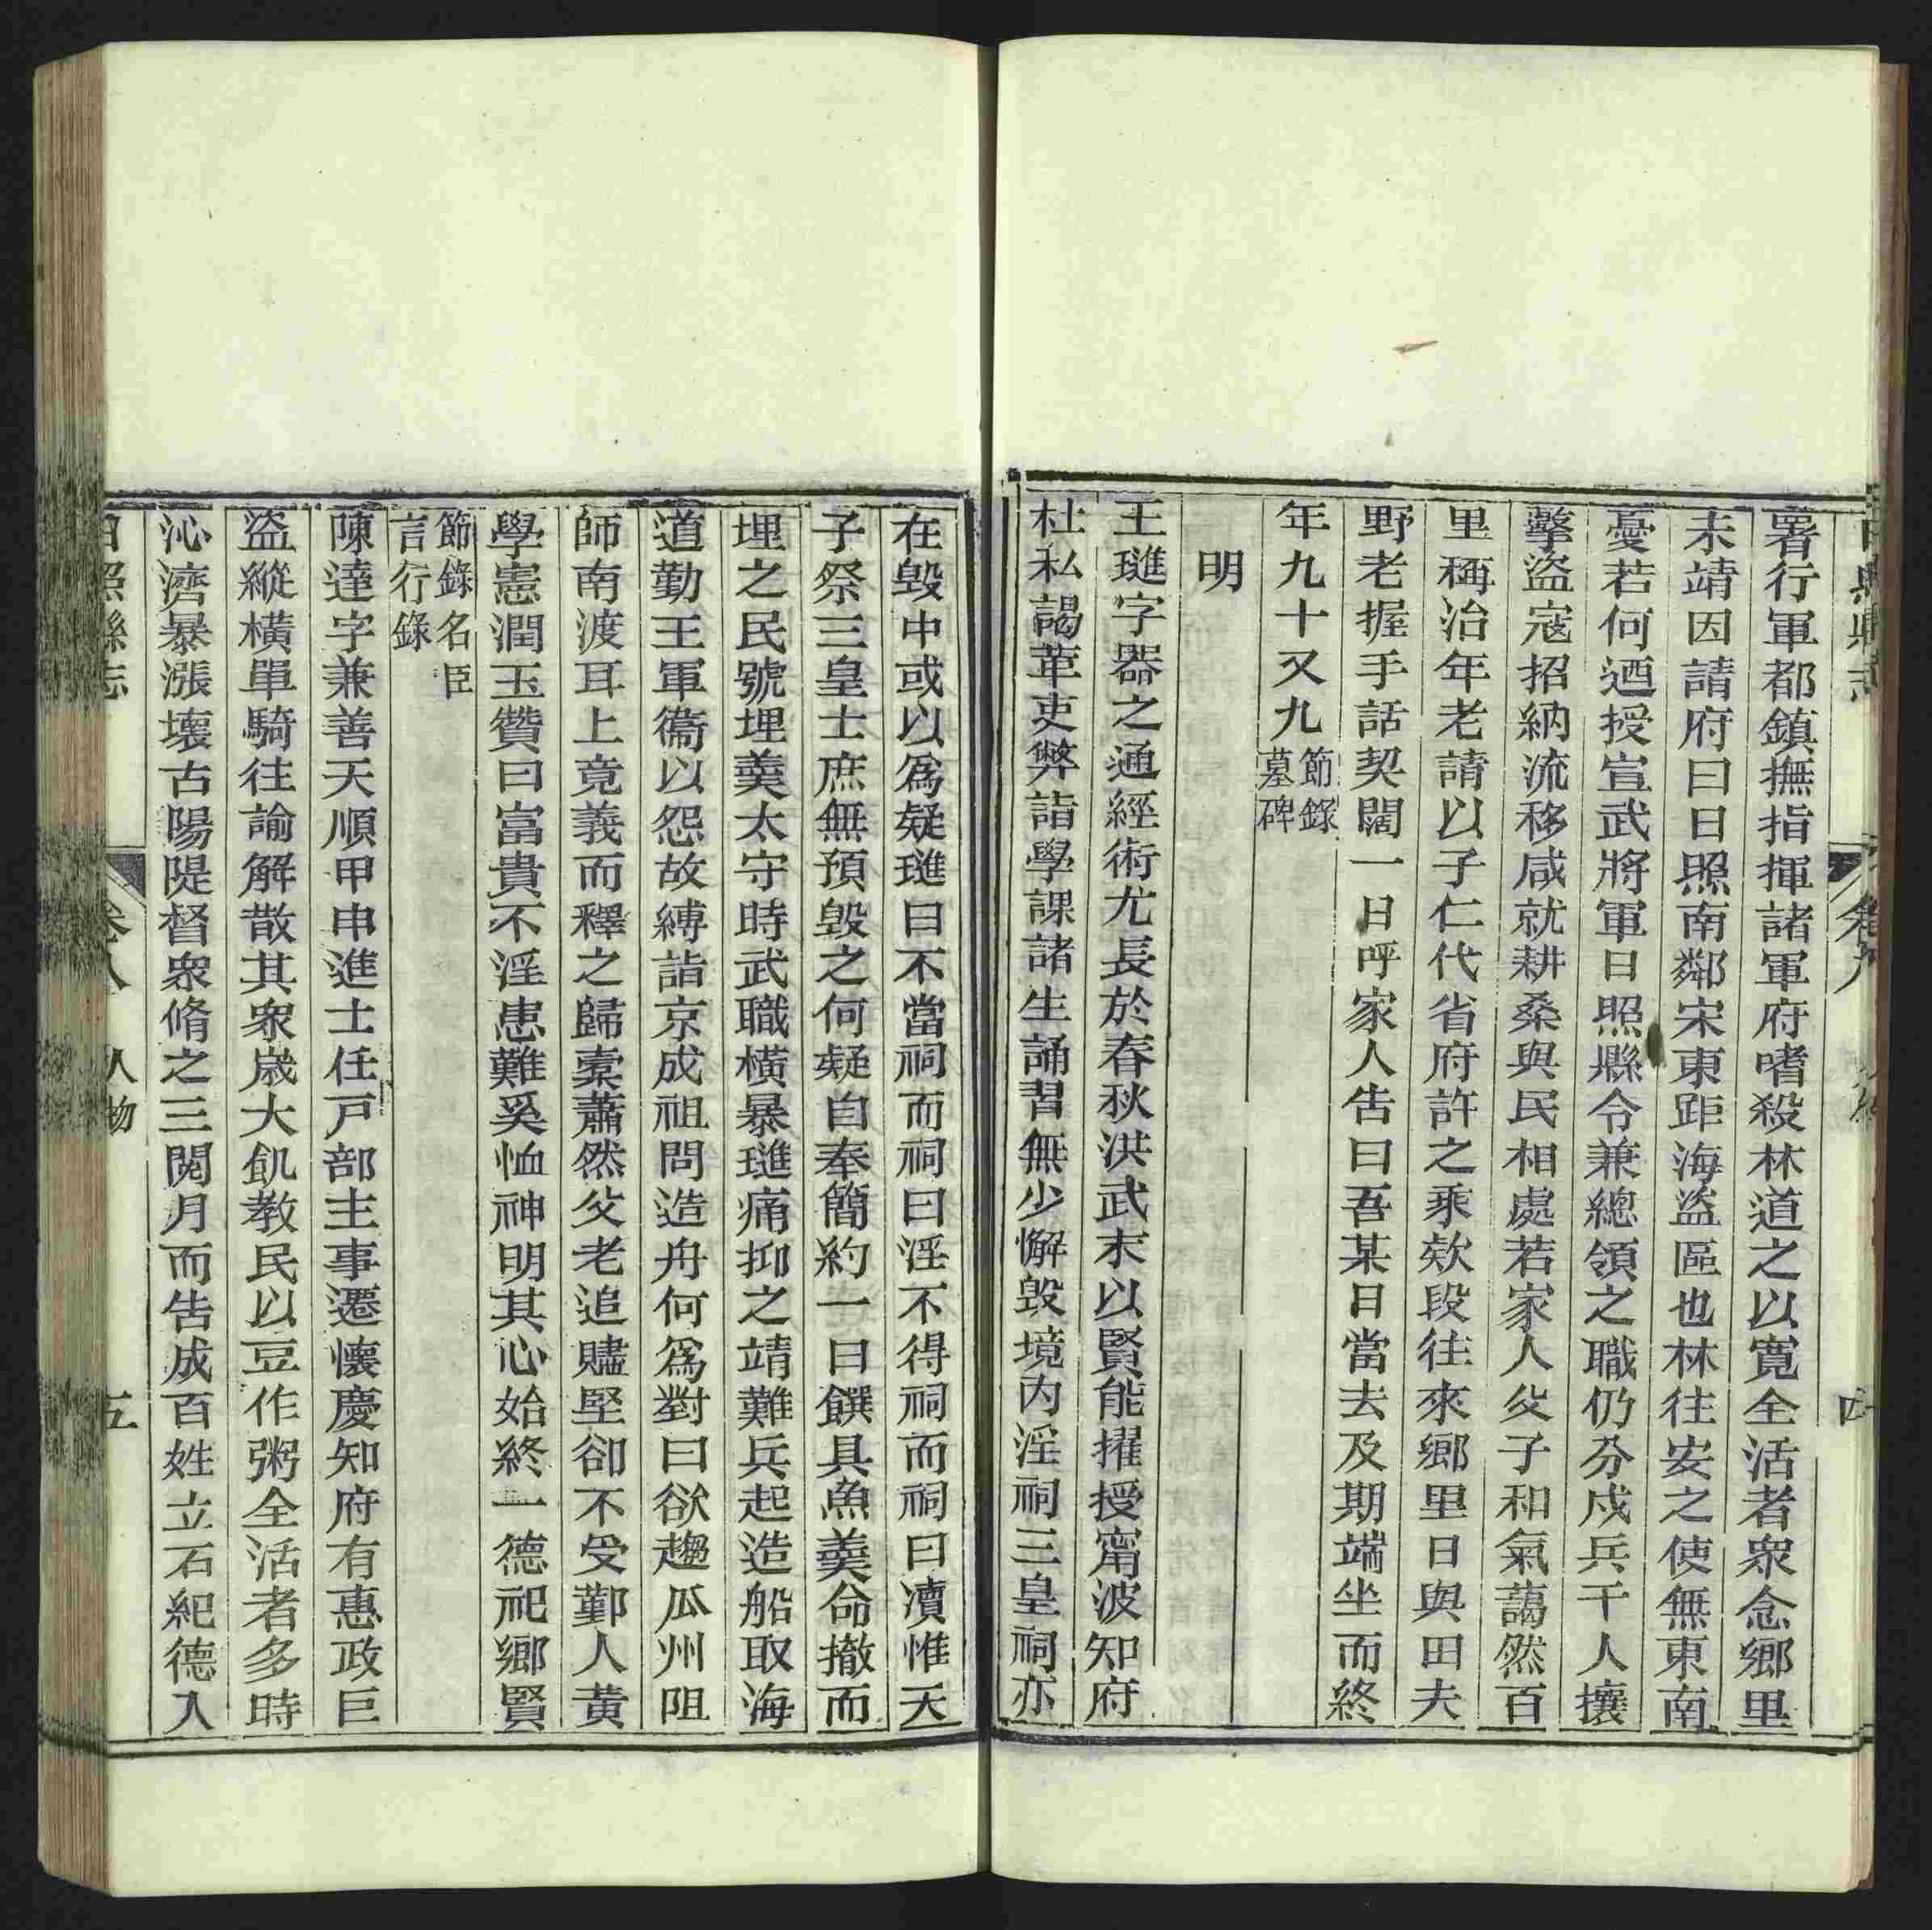 署行軍都鎮撫指揮諸軍府嗜殺林道之以寬全活者衆念鄉里
未靖因請府曰日照南鄰宋東距海盜區也林往安之使無東南
憂若何迺授宣武將軍日照縣令兼總領之職仍分戍兵千人攘
擊盜寇招納流移咸就耕桑與民相處若家人父子和氣藹然百
里稱治年老請以子仁代省府許之乘欵段往來鄉里日與田夫
野老握手話契闊一日呼家人告曰吾某日當去及期端坐而終
年九十又九節錄墓碑
明
王璡字器之通經術尤長於春秋洪武末以賢能擢授甯波知府
杜私謁革吏弊詣學課諸生誦習無少懈毀境内淫祠三皇祠亦
在毀中或以爲疑璡曰不當祠而祠曰淫不得祠而祠曰瀆惟天
子祭三皇士庶無預毀之何疑自奉簡約一日饌具魚羹命撤而
埋之民號埋羹太守時武職橫暴璡痛抑之靖難兵起造船取海
道勤王軍衞以怨故縛詣京成祖問造舟何爲對曰欲趨瓜州阻
師南渡耳上竟義而釋之歸橐蕭然父老追贐堅卻不受鄞人黃
學憲潤玉贊曰富貴不淫患難奚恤神明其心始終一德祀鄉賢
節錄名臣
言行錄
陳達字兼善天順甲申進士任戸部主事遷懷慶知府有惠政巨
盜縱橫單騎往諭解散其衆嵗大飢教民以豆作粥全活者多時
沁濟暴漲壞古陽隄督衆脩之三閱月而告成百姓立石紀德入
日照縣志 卷八 人物 五